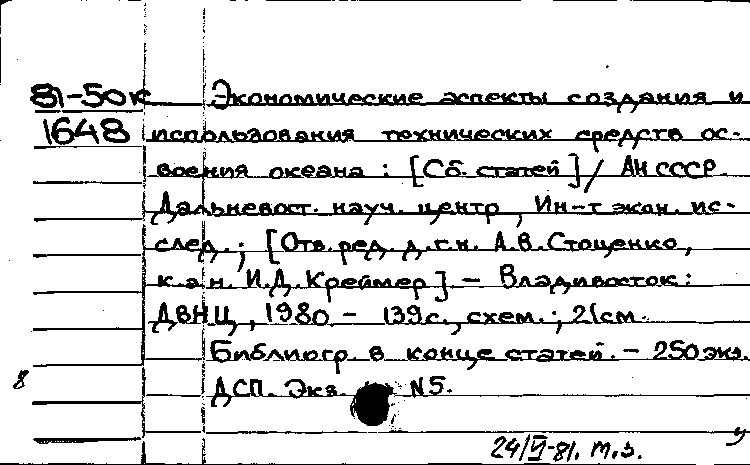 81-50к Экономические аспекты создания и
1648 использования технических средств ос-
воения океана : [Сб. статей] / АН СССР
Дальневост. науч. центр, Ин-т экон. ис-
след.; [Отв. ред. д.г.н. А.В. Стоценко,
к.э.н. И.Д. Креймер]. - Владивосток:
ДВНЦ, 1980 - 139 с., схем.; 21 см.
Библиогр. в конце статей. - 250 экз.
8 ДСП. Экз. N5.
24/VI-81. т.з. у